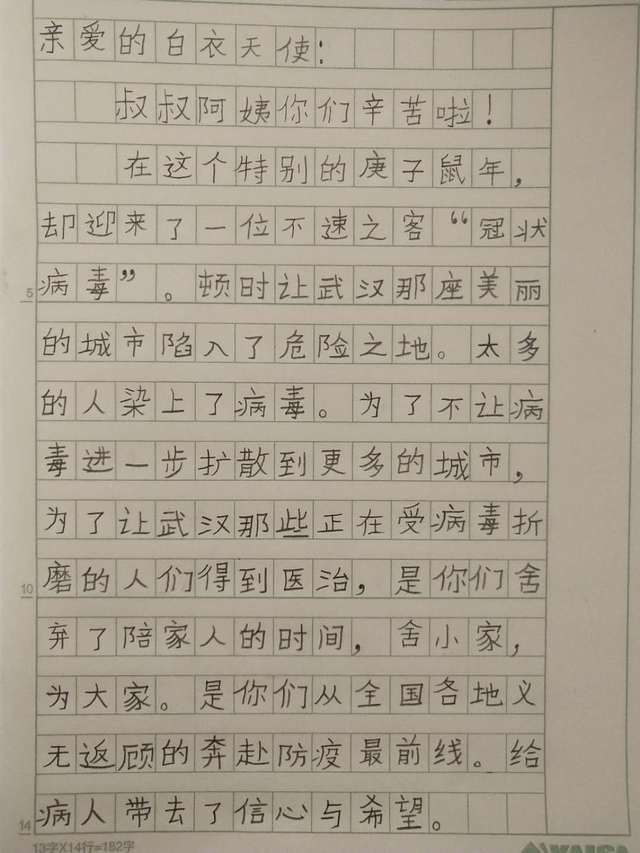 亲爱的白衣天使：
叔叔阿姨你们辛苦啦！
在这个特别的庚子鼠年，
却迎来了一位不速之客“冠状
5 病毒”。顿时让武汉那座美丽
的城市陷入了危险之地。太多
的人染上了病毒。为了不让病
毒进一步扩散到更多的城市，
为了让武汉那些正在受病毒折
10 磨的人们得到医治，是你们舍
弃了陪家人的时间，舍小家，
为大家。是你们从全国各地义
无返顾的奔赴防疫最前线。给
14 病人带去了信心与希望。
13字X14行=182字